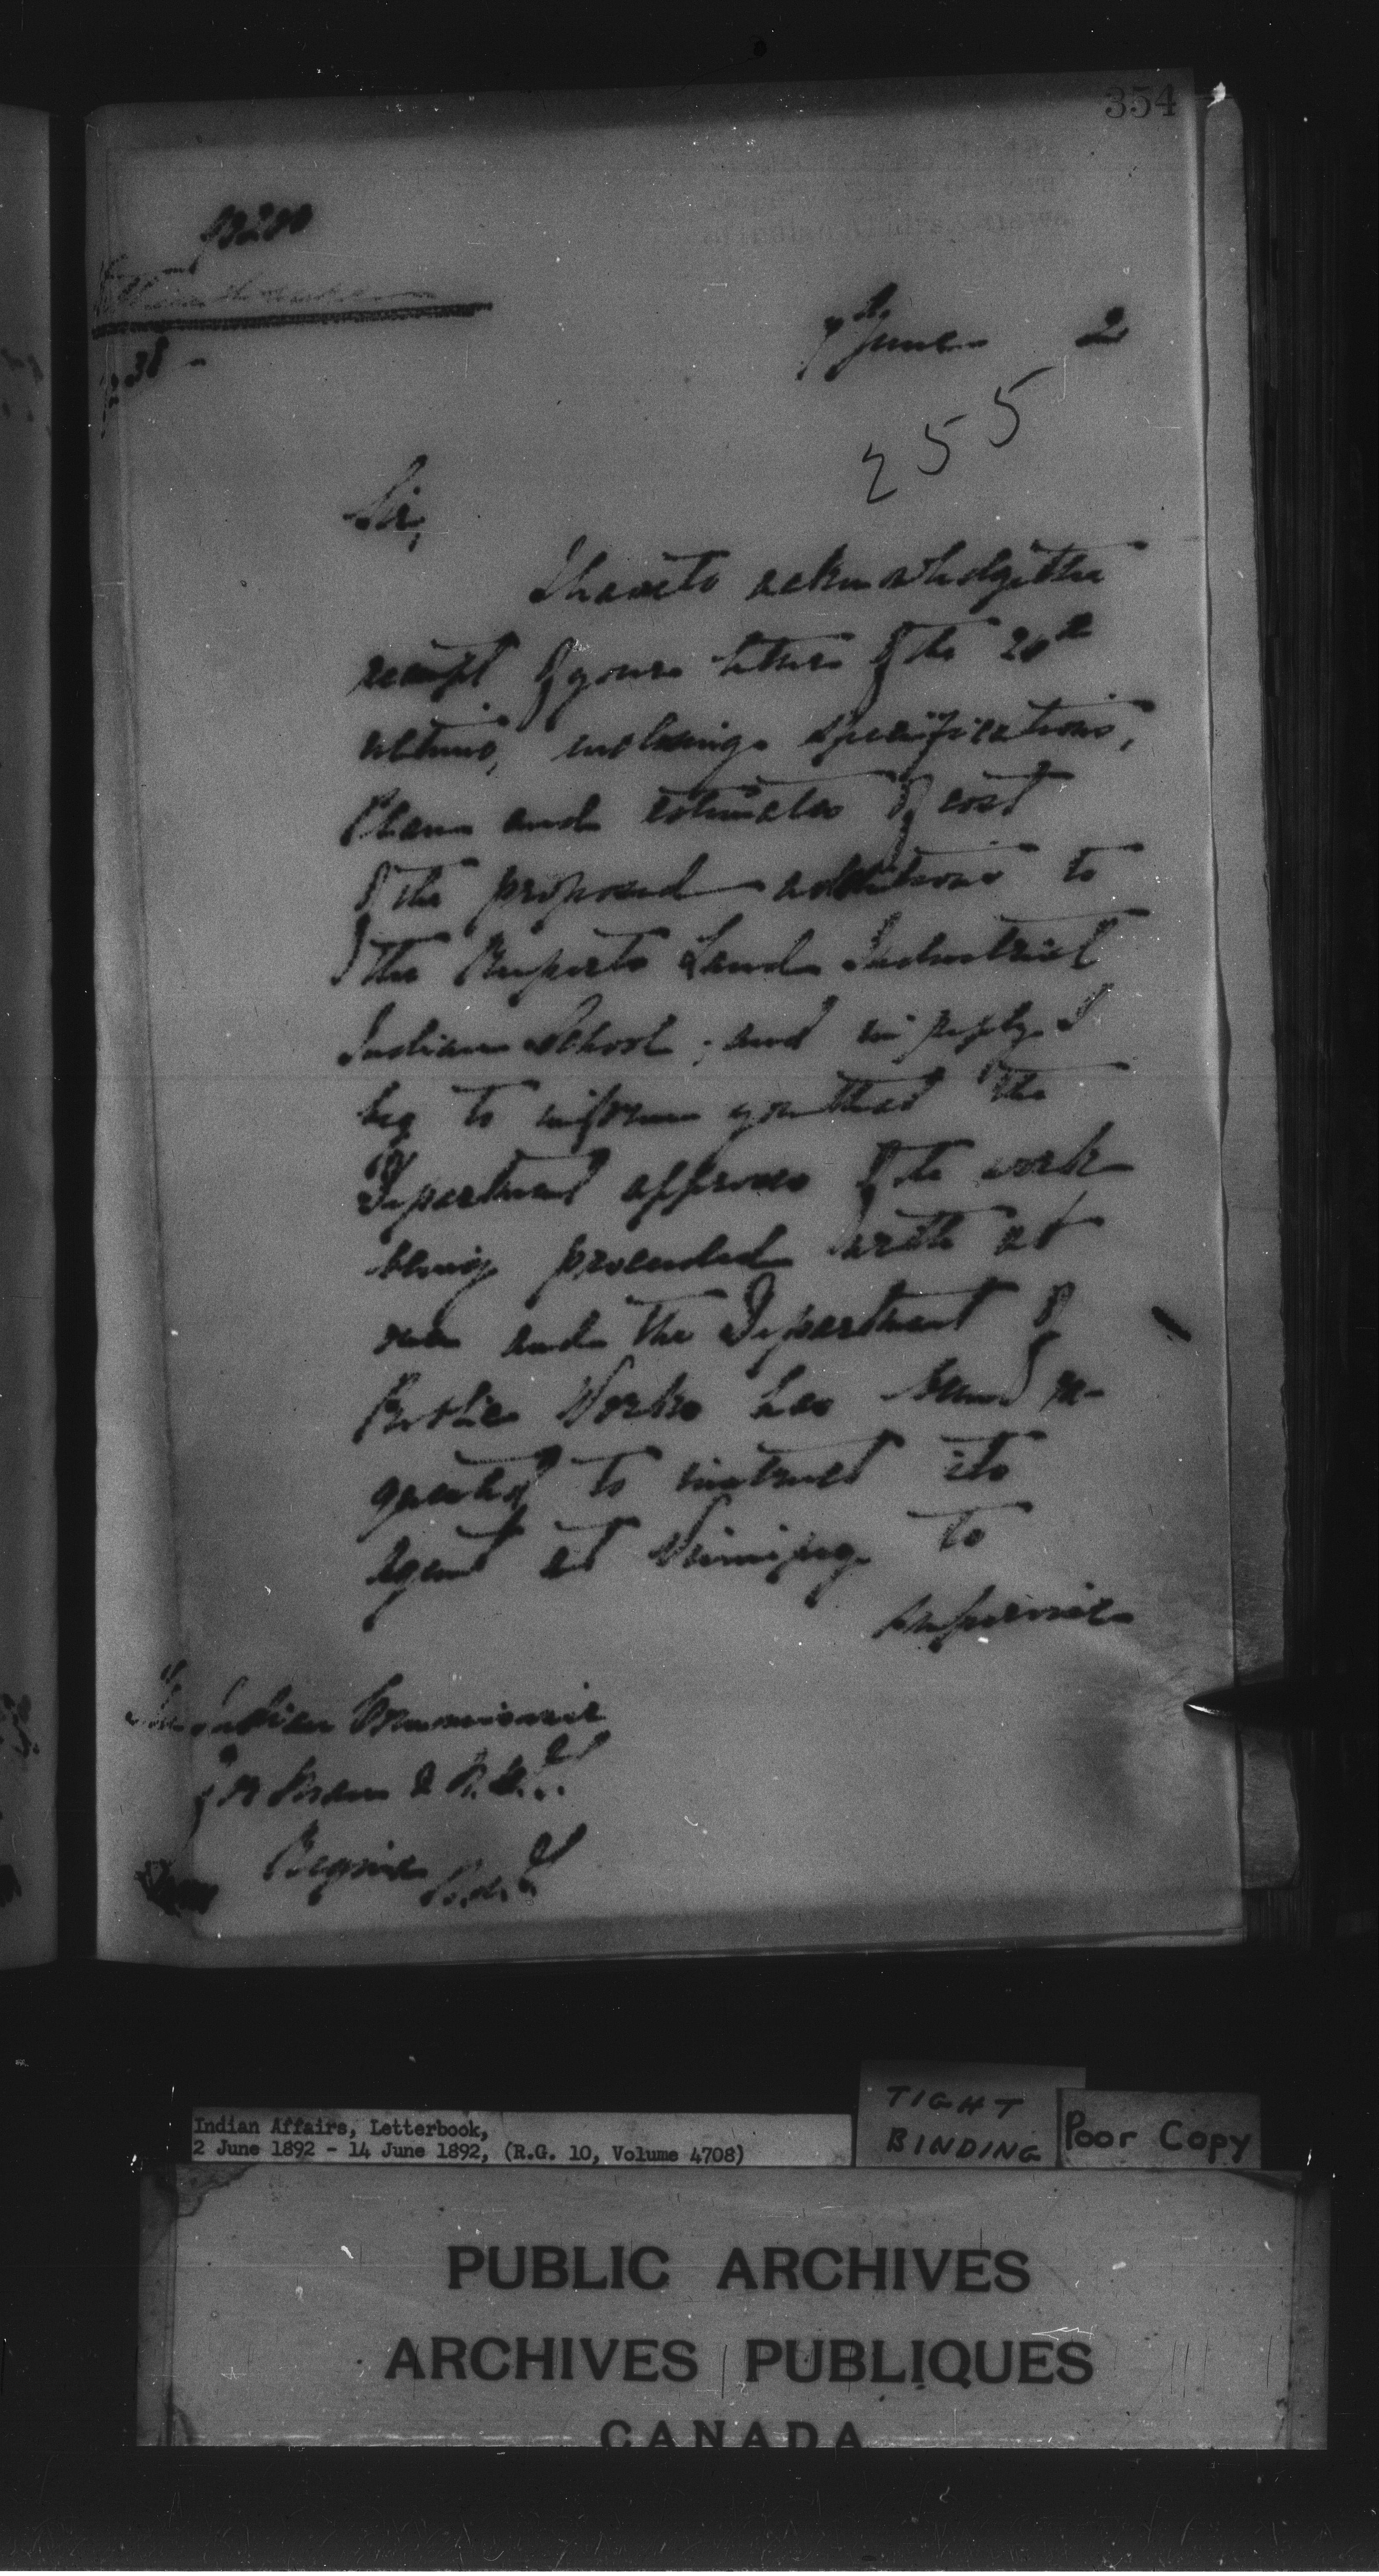 354
93280
7 June 2
255
Sir,
I have to acknowledge the
receipt of your letter of the 20th
ultimo, enclosing specifications,
Plans and estimates of cost
of the proposed additions to
the Ruperts Land Industrial
Indian School; and in reply I
beg to inform you that the
Department approves of the work
being proceeded with at
once and the Department of
Public Works has been re-
quested to instruct its
Agent at Winnipeg to
supervise
The Indian Commissioner
for Man & N.W.T.
Regina
N.W.T.
Indian Affairs, Letterbook,
2 June 1892 - 14 June 1892, (R.G. 10, Volume 4708)
TIGHT
BINDING
Poor Copy
PUBLIC ARCHIVES
ARCHIVES PUBLIQUES
CANADA